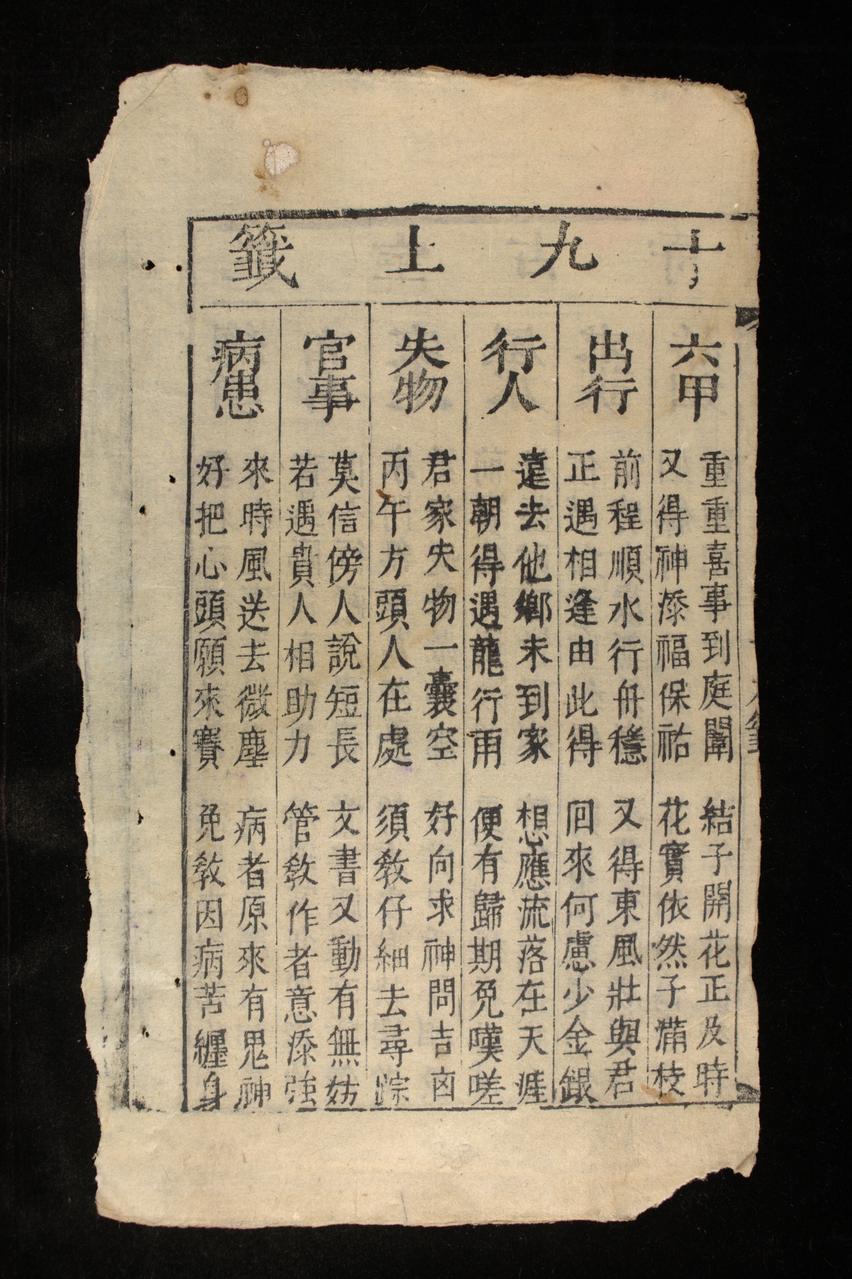 十九上籤
六甲
重重喜事到庭闈 結子開花正及時
又得神添福保祐 花實依然子滿枝
出行
前程順水行舟穩 又得東風壯與君
正遇相逢由此得 回來何慮少金銀
行人
遠去他鄉未到家 想應流落在天涯
一朝得遇龍行雨 便有歸期免嘆嗟
失物
君家失物一囊空 好向求神問吉凶
丙午方頭人在處 須教仔細去尋踪
官事
莫信傍人說短長 文書又動有無妨
若遇貴人相助力 管教作者意添強
病患
來時風送去微塵 病者原來有鬼神
好把心頭願來賽 免教因病苦纏身